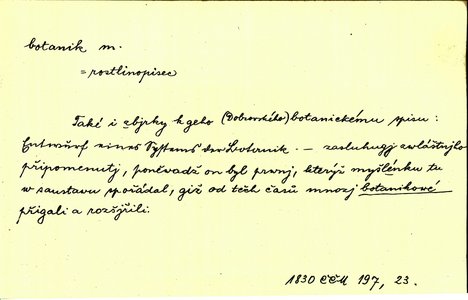 botanik m.
= rostlinopisec
Také i zbjrky k geho (Dobrovského) botanickému spisu:
Entwurf eines Systems der Botanik. – zasluhugj zwlásstnjho
připomenutj, poněvadž on byl prwnj, kterýž myšlénku tu
w saustavu spořádal, giž od těch časů mnozj botanikové
přigali a rozšjřili.
1830 ČČM 197, 23.